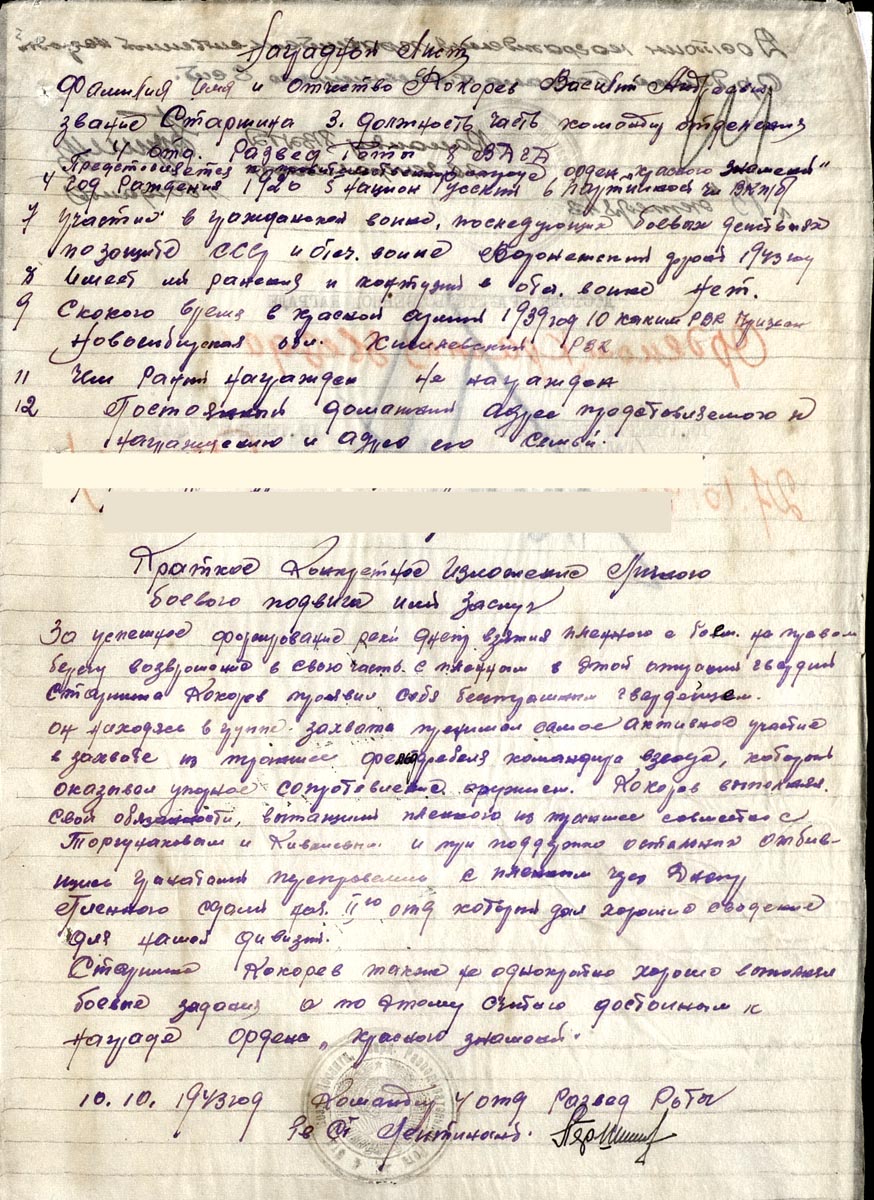 Наградной Лист
Фамилия Имя и отчество Кокорев Василий Андреевич
звание Старшина 3. должность часть командир отделения
4 отд. Развед Роты 9 ВДГД
Представляется к орден „красного знамени"
4 год Рождения 1920 5 национ Русский 6 партийность чл ВКПб
7 участие в гражданской войне, последующих боевых действиях
по защите СССР и отеч. войне Воронежский фронт 1943 году
8 Имеет ли ранения и контузии в отеч. войне нет.
9 Скокого время в красной армии 1939 год 10 каким РВК Призван
Новосибирская обл. РВК
11 Чем Раний награжден не награжден
12 Постоянный домашний адрес представляемого к
награждению и адрес его семьи.
Краткое Конкретное Изложение Личного
боевого подвига или заслуг
За успешное форсирование реки Днепр взятия пленного с боем. на правом
берегу возвращение в свою часть с пленным в этой гвардии
Старшина Кокорев проявил себя бесстрашным гвардейцем.
он находясь в группе захвата принимал самое активное участие
в захвате из траншеи фельдфебеля командира взвода, который
оказывал упорное сопротевление оружием. Кокорев выполняя
свои обязанности, вытащили пленного из траншеи совместно с
и и при поддержке остальных отбив-
шись гранатами переправились с пленным через Днепр
Пленного сдали нач. IIго отд который дал хорошие сведение
для нашей дивизии.
Старшина Кокорев также не однократно хорошо выполнял
боевые задания а по этому считаю достойным к
награде ордена „красного знамени".
10.10.1943 год Командир 4 отд Развед Роты
Гв Ст Лейтинант.